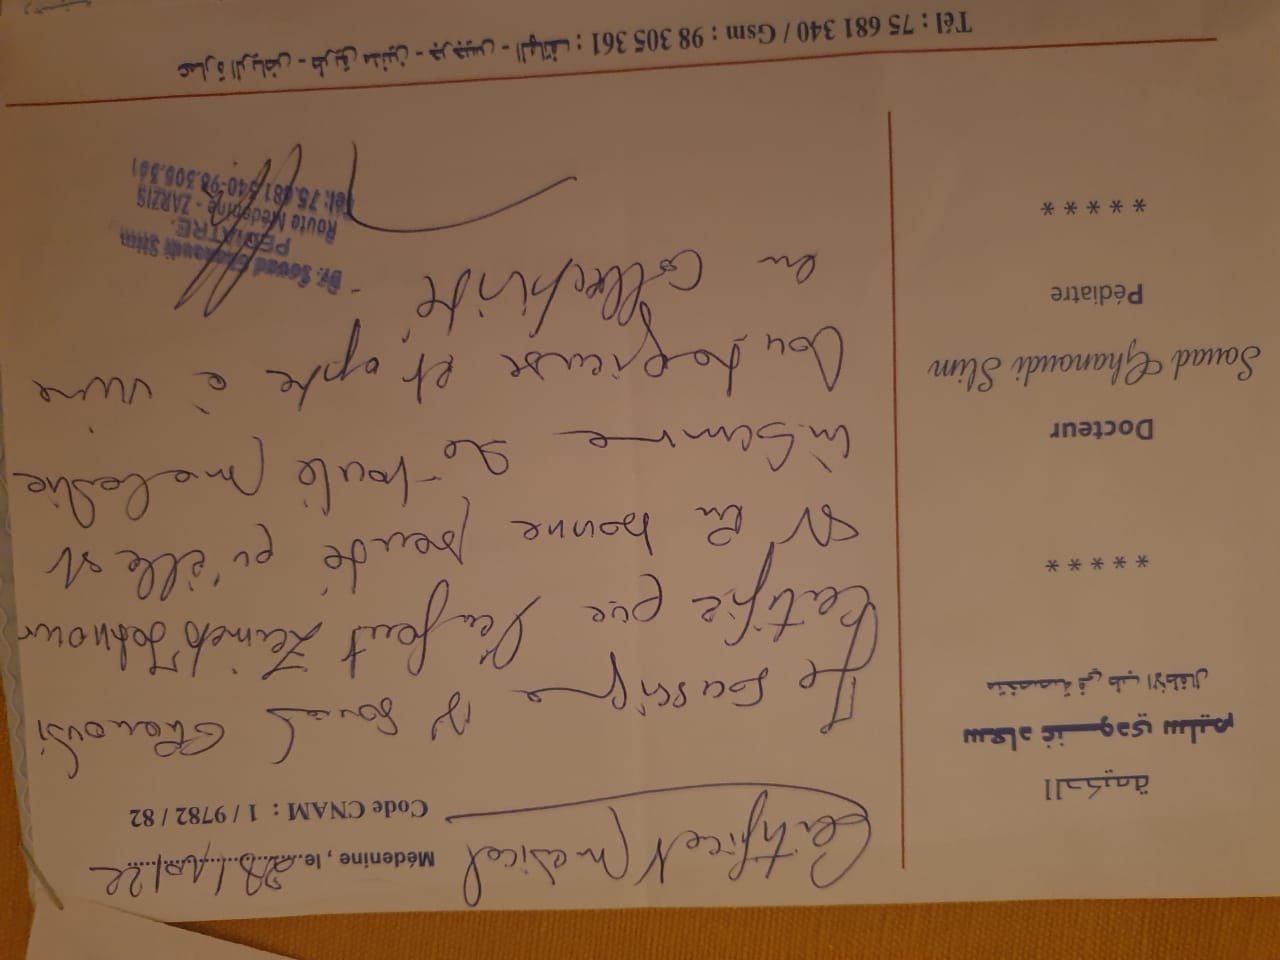 الحكيمة
سعاد غنودي سليم
متخصصة في طب الأطفال
*****
Docteur
Souad Ghanoudi Slim
Pédiatre
*****
Médenine , le 28/10/22
Code CNAM : 1 / 9782 / 82
Certificat médical
Je soussigné Dr Souad Ghanoudi
Certifie que l'enfant Zeineb
est en bonne santé qu'elle est
indemne de toute maladie
contagieuse et apte à vivre
en collectivité
Dr. Souad Ghanoudi Slim
PEDIATRE.
Route Médenine - ZARZIS
Tél: 75.681.340-98.305.361
عمارة الرياض - طريق مدنين - جرجيس - الهاتف : Tél : 75 681 340 / Gsm : 98 305 361